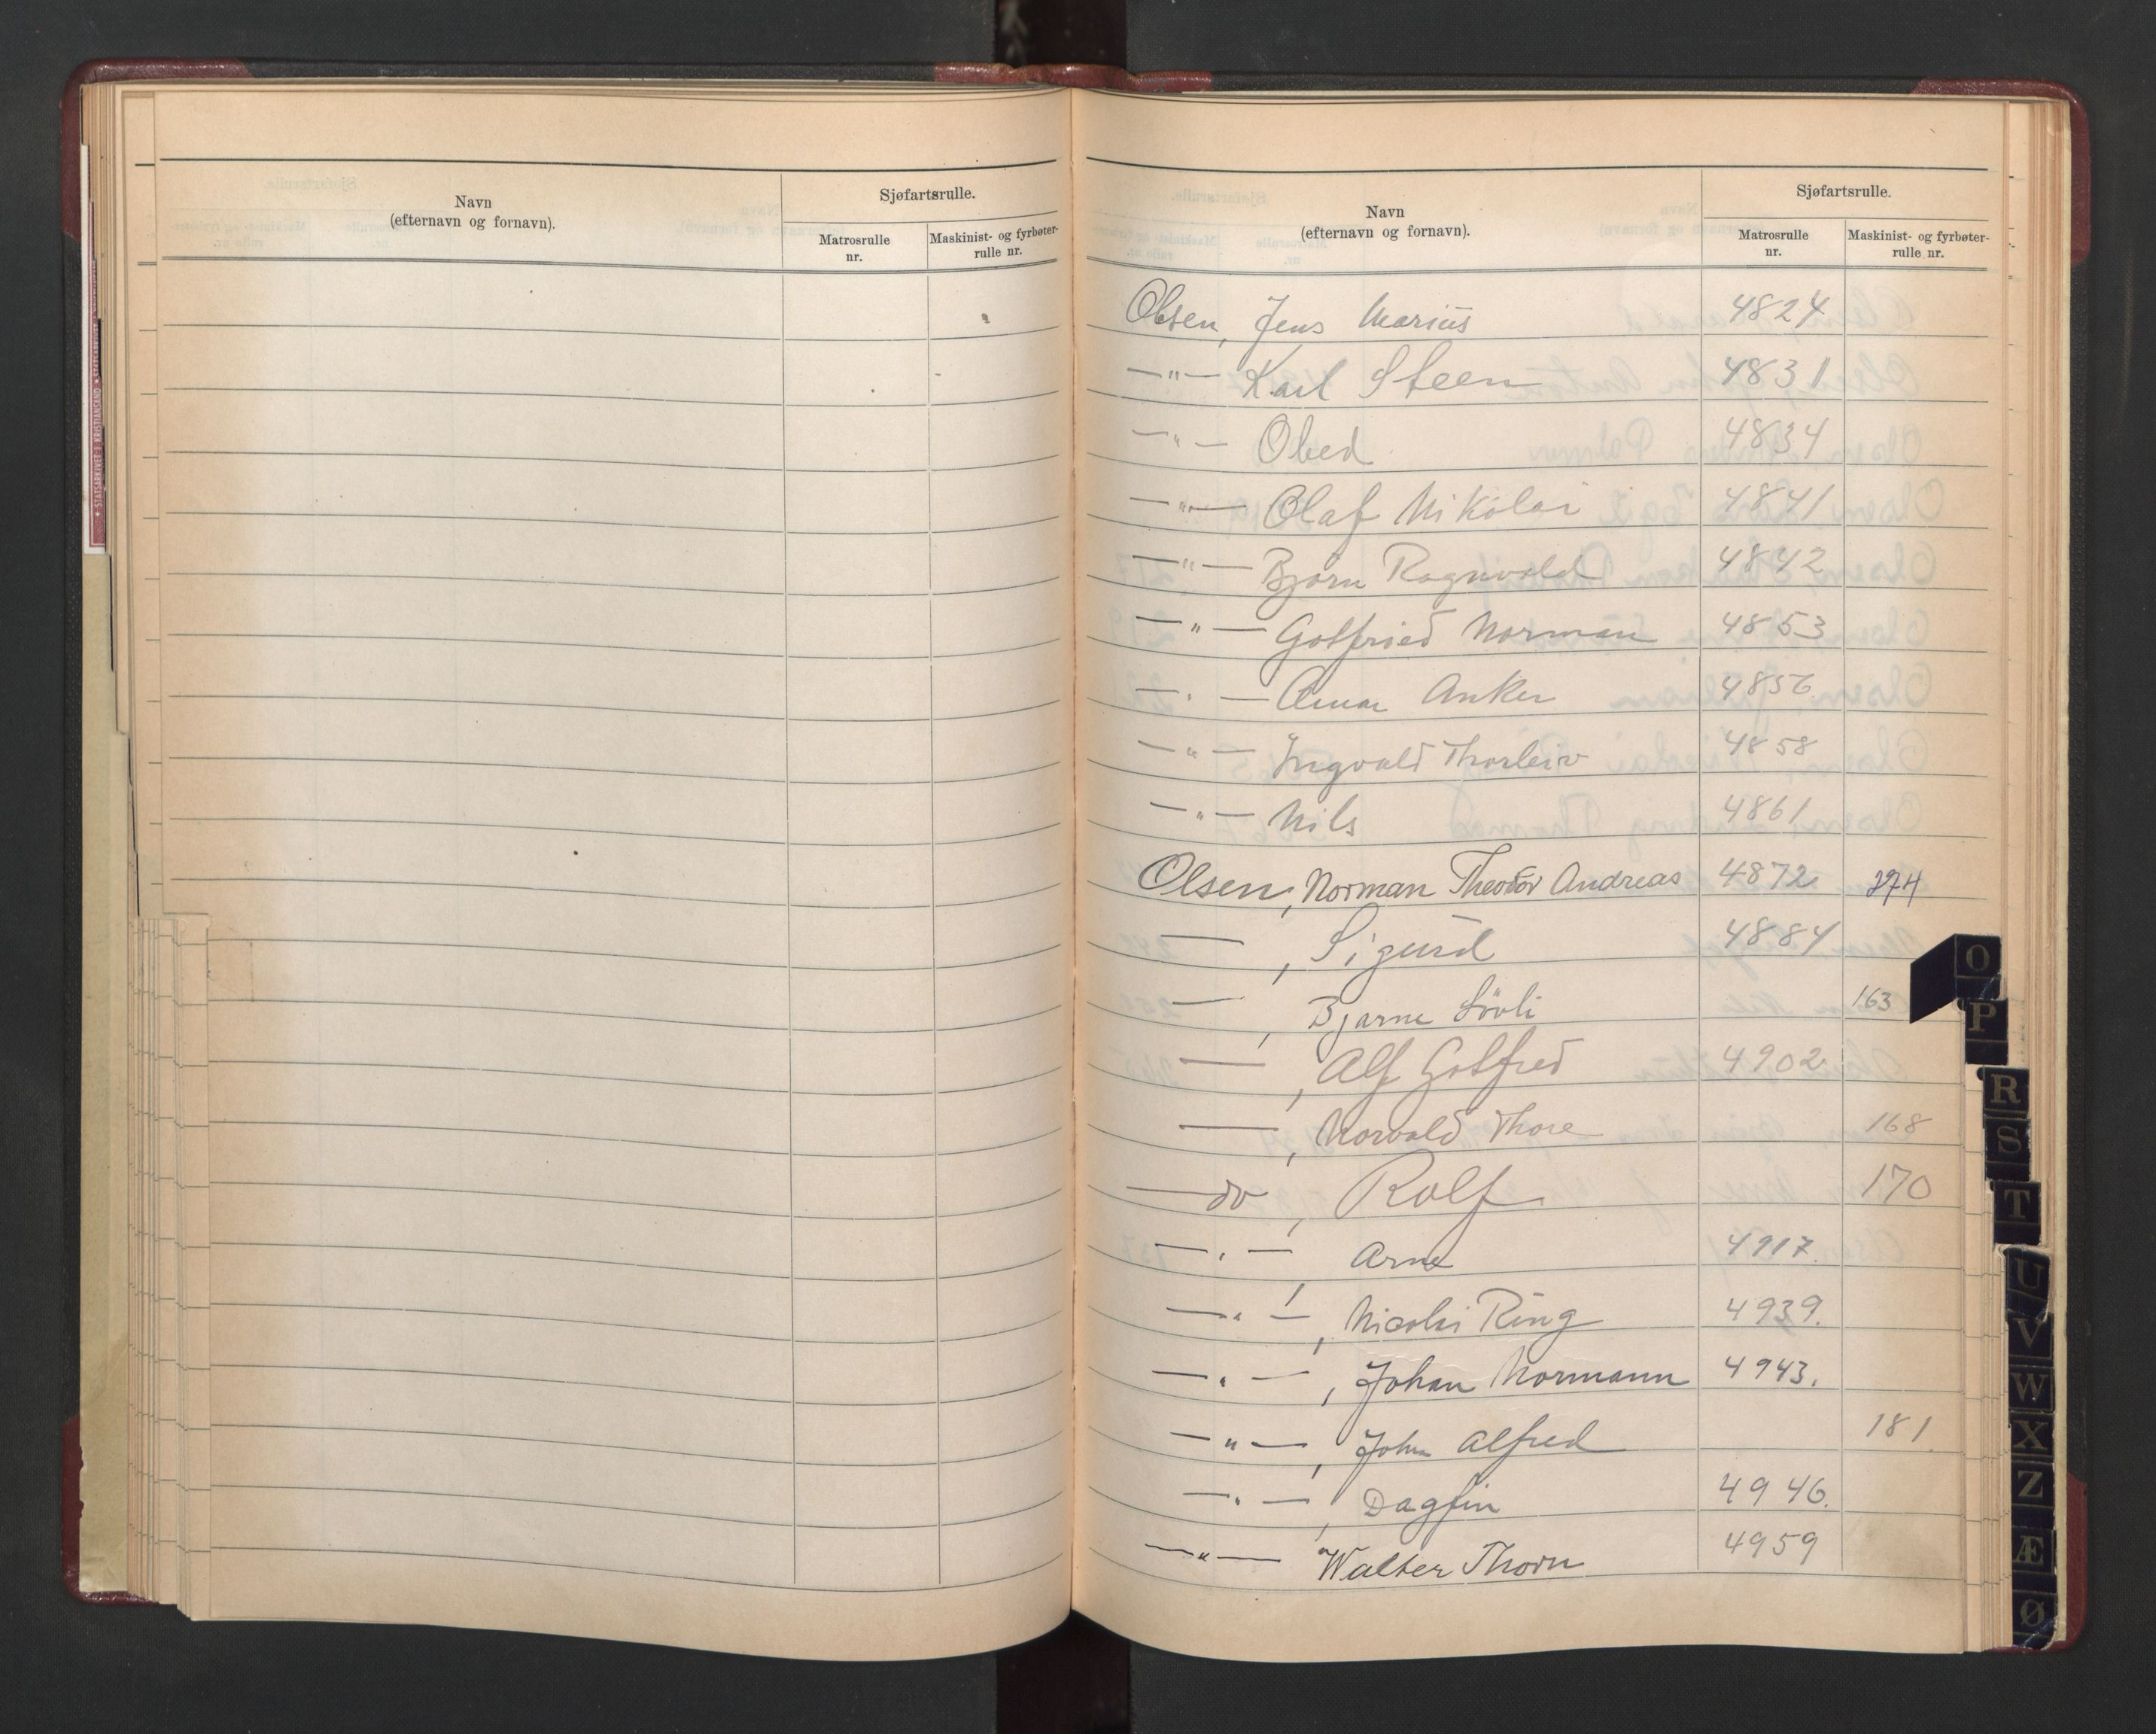 Navn
(efternavn og fornavn).
Sjøfartsrulle.
Matrosrulle nr.
Maskinist- og fyrbøter-rulle nr.
Navn
(efternavn og fornavn).
Sjøfartsrulle.
Matrosrulle nr.
Maskinist- og fyrbøter-rulle nr.
Olsen, Jens Marius 4824
—"— Karl Steen 4831
—"— Obed 4834
—"— Olaf Nikolai 4841
—"— Bjørn Ragnvald 4842
—"— Gotfried Norman 4853
—"— Anker 4856
—"— Ingvald Thorleiv 4858
—"— Nils 4861
Olsen, Norman Theodor Andreas 4872 274
—, Sigurd 4884
—, Bjarne Lövli 163
—, Alf Gotfred 4902
—, Norvald Thore 168
—do, Rolf 170
—"—, Arne 4917.
—"—, Nicolai Ring 4939.
—"—, Johan Normann 4943.
—"—, John Alfred 181.
—"—, Dagfin 4946.
—"— Walter Thorn 4959
O
P
R
S
T
U
V
W
X
Z
Æ
Ø